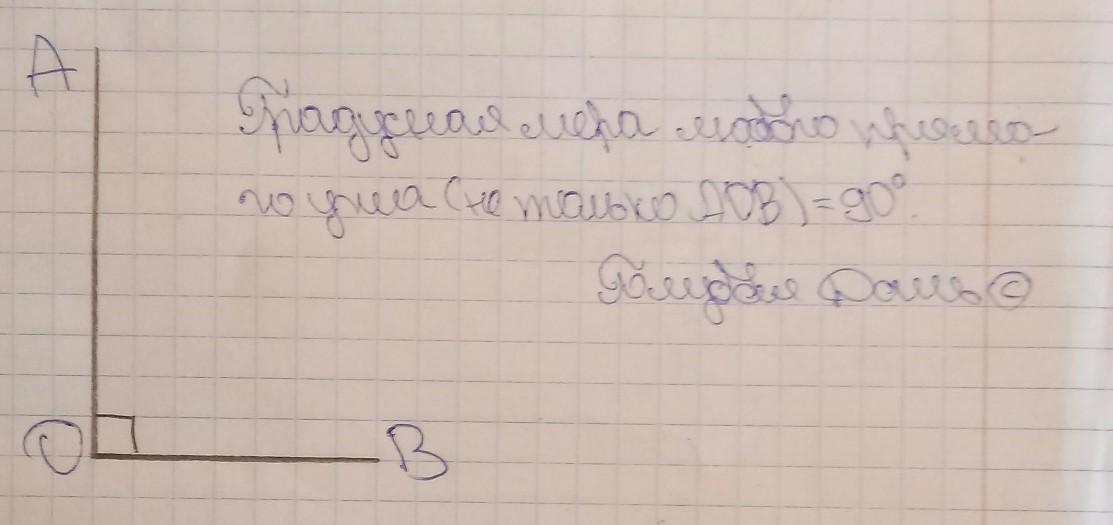 A
Градусная мера любого прямо-
го угла (не только AOB) = 90°.
Голубая Даль
O
B